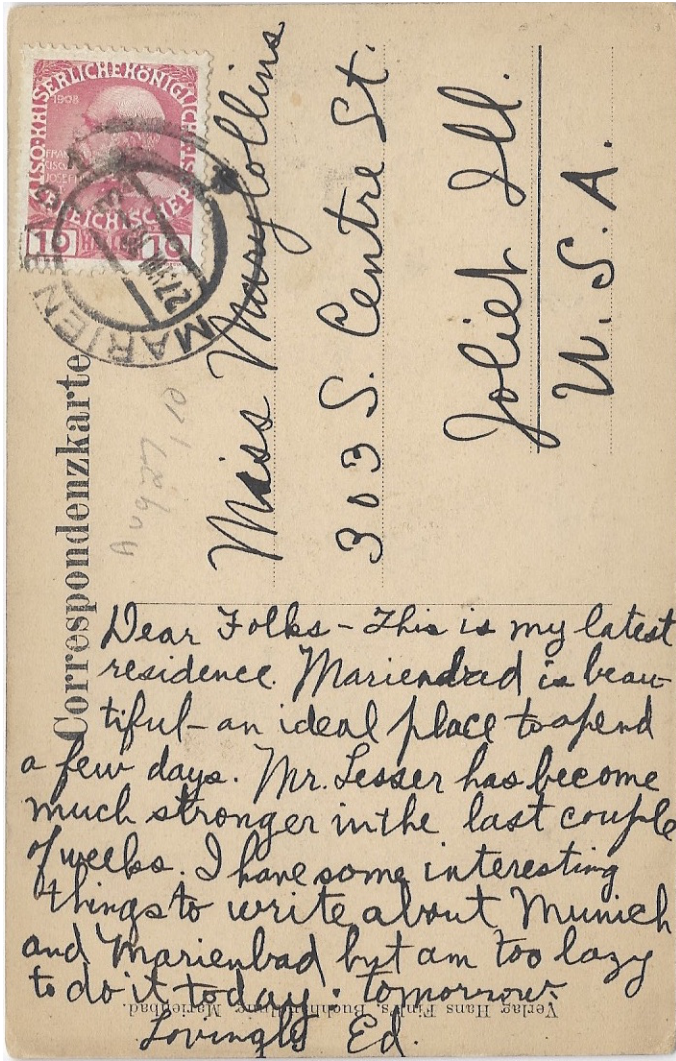 KAISERLICHE KÖNIGLICHE ÖSTERREICHISCHE POST
1908
10 HELLER 10
MARIENBAD
27 VIII
Correspondenzkarte
Miss Mary Collins
303 S. Centre St.
Joliet Ill.
U. S. A.
Dear Folks - This is my latest
residence. Marienbad is beau-
tiful - an ideal place to spend
a few days. Mr. Lesser has become
much stronger in the last couple
of weeks. I have some interesting
things to write about Munich
and Marienbad but am too lazy
to do it today: tomorrow.
Lovingly Ed.
Verlag Hans Fink's Buchhandlung, Marienbad.